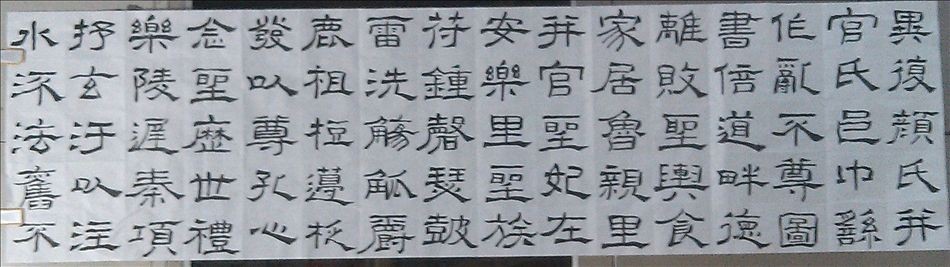 異復顏氏并
官氏邑中繇
作亂不尊圖
書倍道畔德
離敗聖輿食
家居魯親里
并官聖妃在
安樂里聖族
苻鍾磬瑟鼓
雷洗觴觚爵
鹿柤梪籩柉
發以尊孔心
念聖歷世禮
樂陵遲秦項
抒玄汙以注
水流法舊不